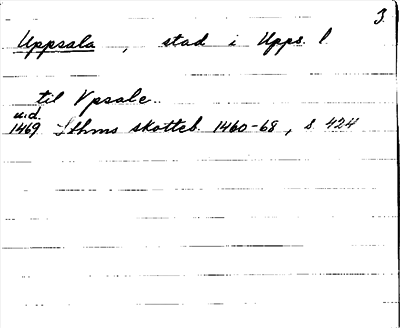 3
Uppsala, stad i Upps. l.
til Vpsale..
u.d.
1469 Sthms skotteb. 1460-68, s 424